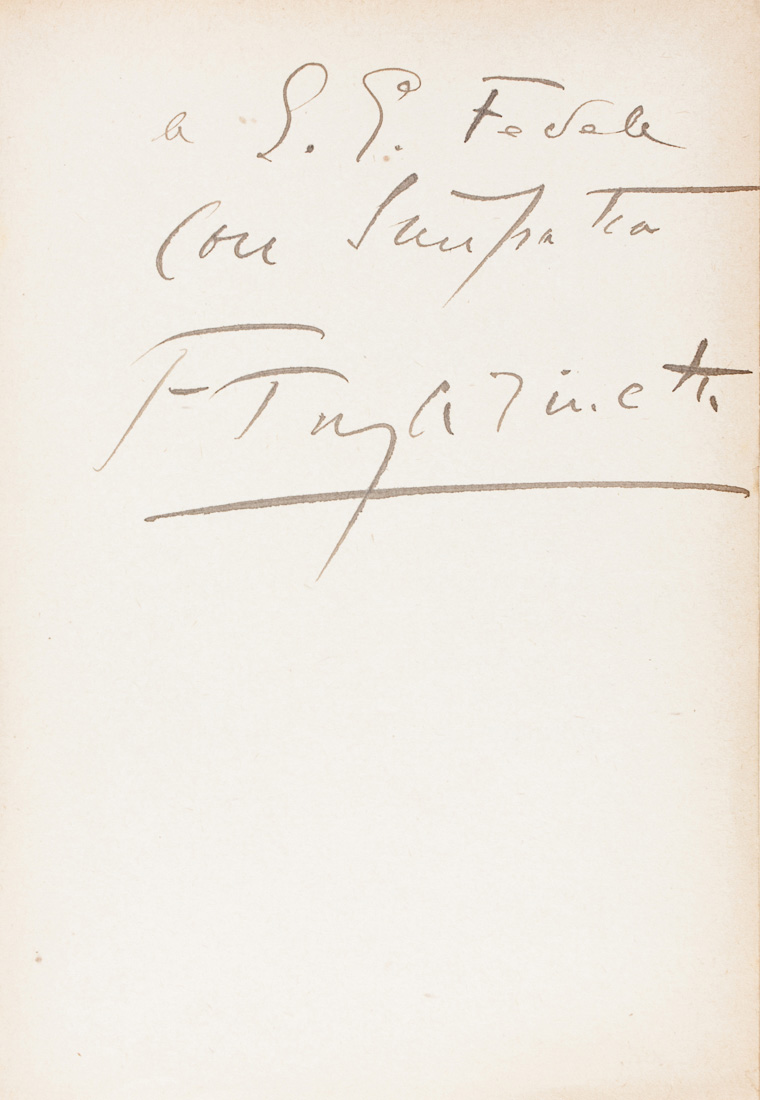 a S. E. Fedele
con simpatia
F T Marinetti